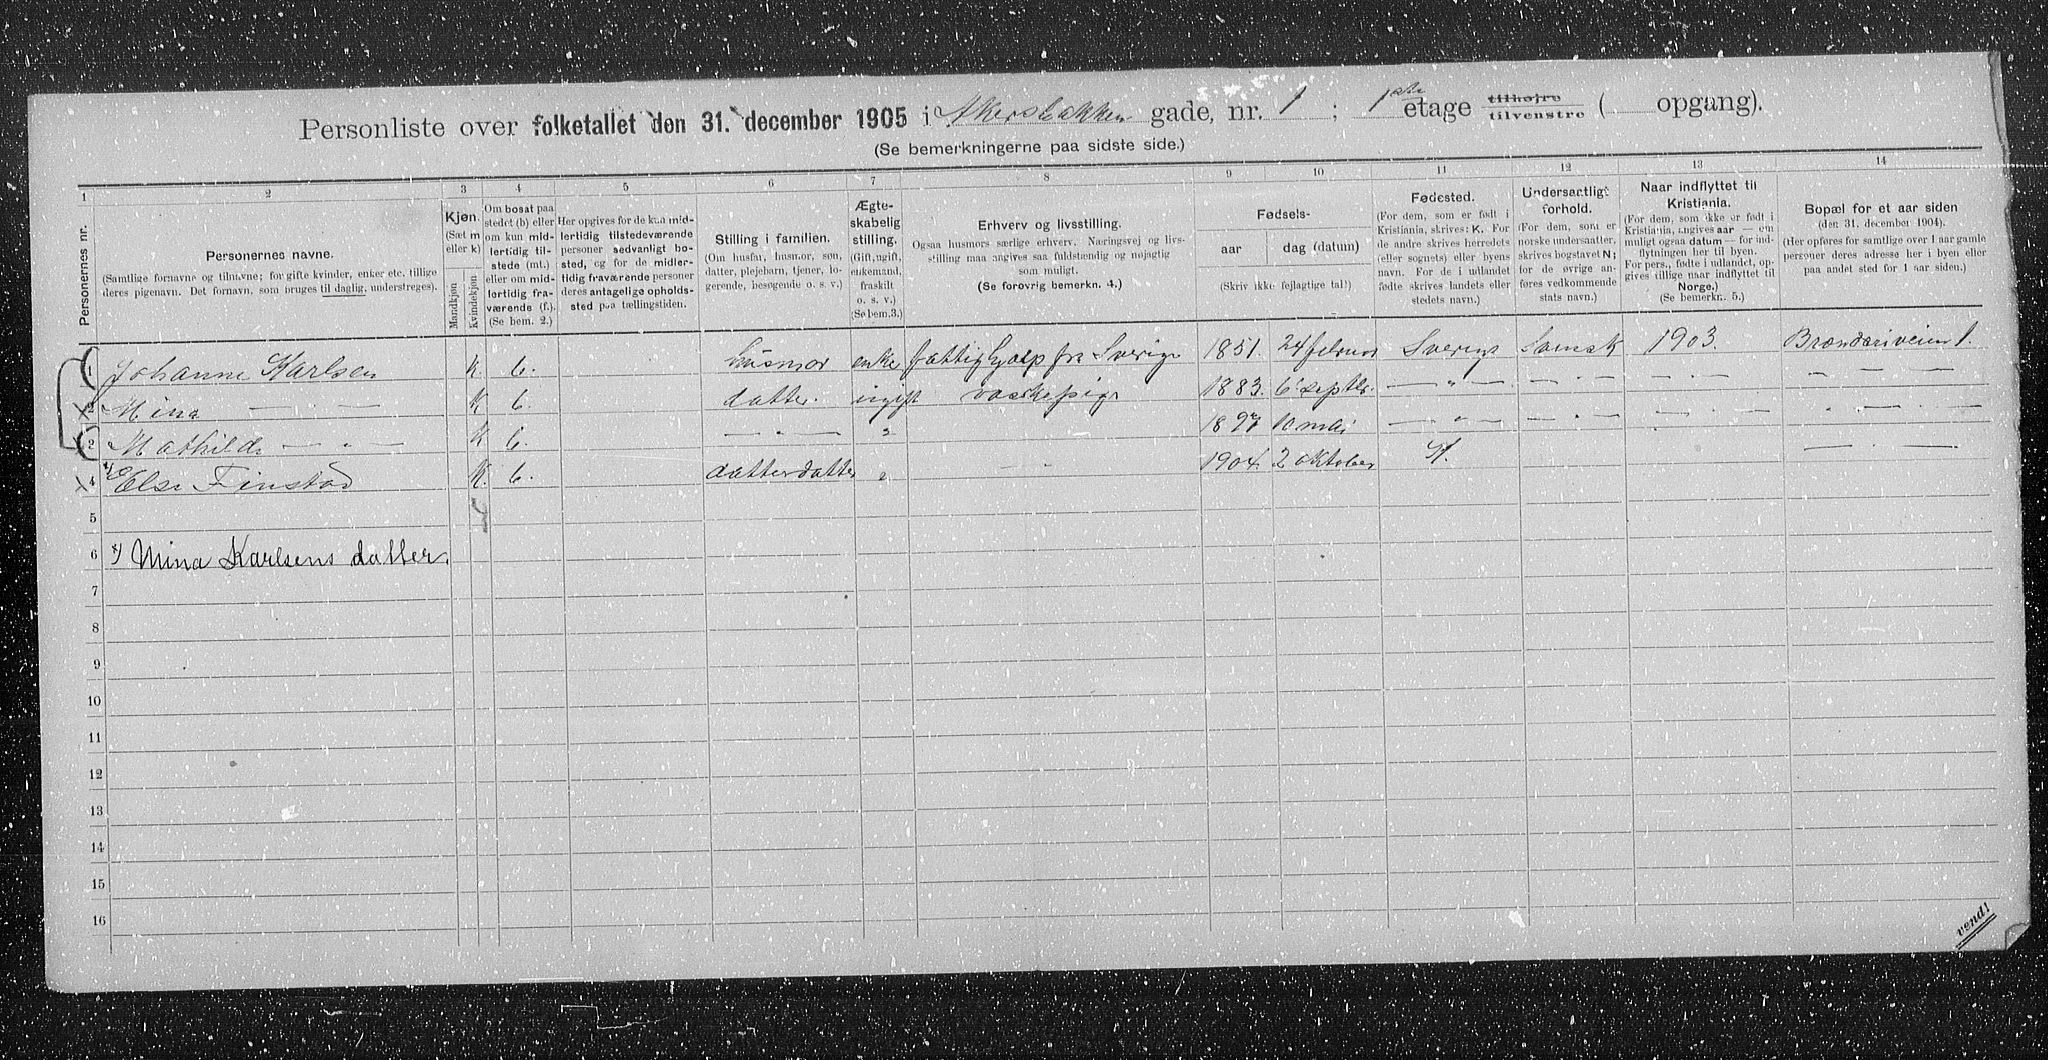 Personliste over folketallet den 31. december 1905 i Akersbakken gade, nr. 1 ; 1ste etage tilhøjre tilvenstre ( opgang).
(Se bemerkningerne paa sidste side.)
1 2 3 4 5 6 7 8 9 10 11 12 13 14
Personernes nr.
Personernes navne.
(Samtlige fornavne og tilnavne; for gifte kvinder, enker etc. tillige
deres pigenavn. Det fornavn, som bruges til daglig, understreges).
Kjøn.
(Sæt m
eller k)
Mandkjøn
Kvindekjøn
Om bosat paa
stedet (b) eller
om kun mid-
lertidig til-
stede (mt.)
eller om mid-
lertidig fra-
værende (f.).
(Se bem. 2.)
Her opgives for de kun mid-
lertidig tilstedeværende
personer sedvanligt bo-
sted, og for de midler-
tidig fraværende personer
deres antagelige opholds-
sted paa tællingstiden.
Stilling i familien.
(Om husfar, husmor, søn,
datter, plejebarn, tjener, lo-
gerende, besøgende o. s. v.)
Ægte-
skabelig
stilling.
(Gift, ugift,
enkemand,
fraskilt
o. s. v.)
(Se bem.3.)
Erhverv og livsstilling.
Ogsaa husmors særlige erhverv. Næringsvej og livs-
stilling maa angives saa fuldstændig og nøjagtig
som muligt.
(Se forøvrig bemerkn. 4.)
Fødsels-
aar
dag (datum)
(Skriv ikke fejlagtige tal!)
Fødested.
(For dem, som er født i
Kristiania, skrives: K. For
de andre skrives herredets
(eller sognets) eller byens
navn. For de i udlandet
fødte skrives landets eller
stedets navn.)
Undersaatligt
forhold.
(For dem, som er
norske undersaatter,
skrives bogstavet N;
for de øvrige an-
føres vedkommende
stats navn.)
Naar indflyttet til
Kristiania.
(For dem, som ikke er født i
Kristiania, angives aar — om
muligt ogsaa datum — for ind-
flytningen her til byen.
For pers., født i udlandet, op-
gives tillige naar indflyttet til
Norge.)
(Se bemerkn. 5.)
Bopæl for et aar siden
(den 31. december 1904).
(Her opføres for samtlige over 1 aar gamle
personer deres adresse her i byen eller
paa andet sted for 1 aar siden.)
1 Johanne Karlsen K. b. husmor enke fattighjælp fra Sverige 1851. 24 februar Sverige Svensk 1903. Brænderiveien 1.
2 Mina — " — K b. datter. ugift vaskepige 1883. 6 septbr. — " — — " — — " — — " —
2 Mathilde — " — K b. — " — " 1897 10 mai — " — — " — — " — — " —
x) 4 Else Finstad K. b. datterdatter " — " — 1904. 2 oktober K. — " —
5
6 x) Mina Karlsens datter.
7
8
9
10
11
12
13
14
15
16
vend!